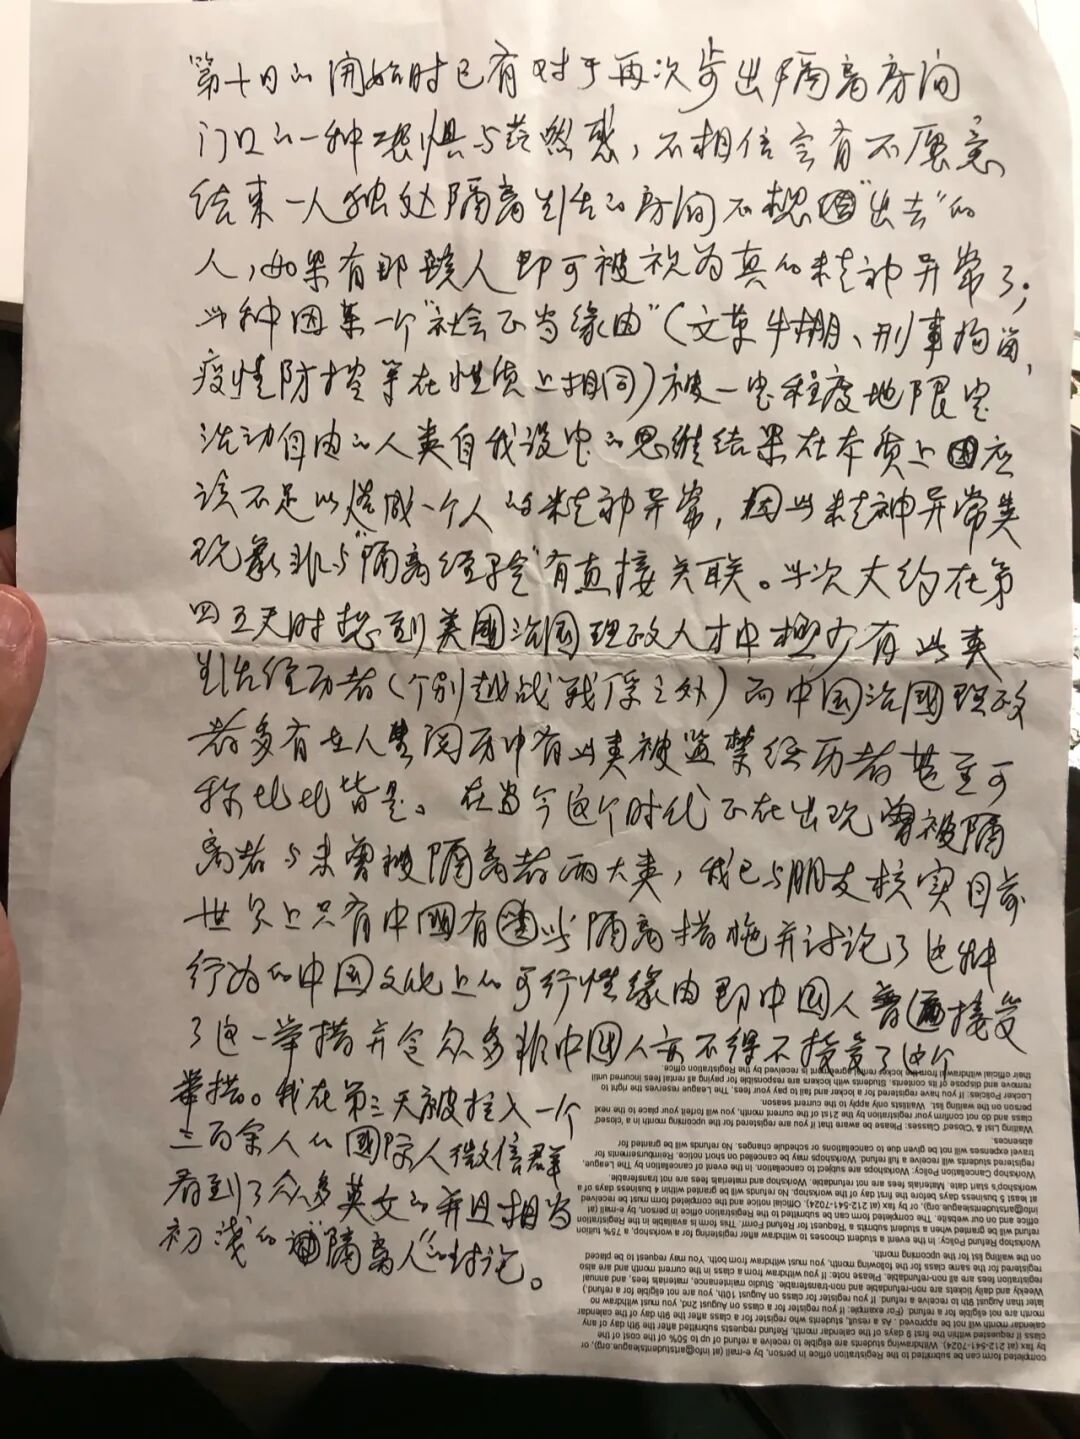 第十日的开始时已有对于再次步出隔离房间
门口的一种恐惧与茫然感，不相信会有不愿意
结束一人独处隔离生活的房间不想“出去”的
人，如果有那该人即可被视为真的精神异常了；
此种因某一个“社会正当缘由”（文革牛棚、刑事拘留，
疫情防控等在性质上相同）被一定程度地限定
活动自由的人类自我设定的思维结果在本质上应
该不足以造成一个人的精神异常，因此精神异常类
现象非与“隔离经验”有直接关联。此次大约在第
四五天时想到美國治国理政人才中極少有此类
生活经历者（个别越战战俘之外）而中国治國理政
者多有在人生阅历中有此类被监禁经历者甚至可
称比比皆是。在当今这个时代正在出现曾被隔
离者与未曾被隔离者两大类，我已与朋友核实目前
世界上只有中國有此隔离措施并讨论了这种
行为的中国文化上的可行性缘由即中国人普遍接受
了这一举措并令众多非中国人亦不得不接受了这个
举措。我在第三天被拉入一个
三百余人的國际人微信群
看到了众多英文的并且相当
初浅的“隔离人”的讨论。
their official withdrawal from the locker rental agreement is received by the Registration office.
remove and dispose of its contents. Students with lockers are responsible for paying all rental fees incurred until
Locker Policies: If you have registered for a locker and fail to pay your fees, The League reserves the right to
person on the waiting list. Waitlists only apply to the current season.
class and do not confirm your registration by the 21st of the current month, you will forfeit your place to the next
Waiting List & 'Closed' Classes: Please be aware that if you are registered for the upcoming month in a closed
absences.
travel expenses will not be given due to cancellations or schedule changes. No refunds will be granted for
registered students will receive a full refund. Workshops may be cancelled on short notice. Reimbursements for
Workshop Cancellation Policy: Workshops are subject to cancellation. In the event of cancellation by The League,
workshop's start date. Materials fees are not refundable. Workshop and materials fees are not transferable.
at least 5 business days before the first day of the workshop. No refunds will be granted within 4 business days of a
info@artstudentsleague.org), or by fax (at 212-541-7024). Official notice and the completed form must be received
office and on our website. The completed form can be submitted to the Registration office in person, by e-mail (at
refund will be granted when a student submits a 'Request for Refund Form'. This form is available in the Registration
Workshop Refund Policy: In the event a student chooses to withdraw after registering for a workshop, a 75% tuition
on the waiting list for the upcoming month.
registered for the same class for the following month, you must withdraw from both. You may request to be placed
registration fees are all non-refundable. Please note: If you withdraw from a class in the current month and are also
Weekly and daily tickets are non-refundable and non-transferable. Studio maintenance, materials fees, and annual
later than August 9th to receive a refund. If you register for class on August 10th, you are not eligible for a refund.)
month are not eligible for a refund. (For example: If you register for a class on August 2nd, you must withdraw no
calendar month will not be approved. As a result, students who register for a class after the 9th day of the calendar
class if requested within the first 9 days of the calendar month. Refund requests submitted after the 9th day of any
by fax (at 212-541-7024). Withdrawing students are eligible to receive a refund of up to 50% of the cost of the
completed form can be submitted to the Registration office in person, by e-mail (at info@artstudentsleague.org), or